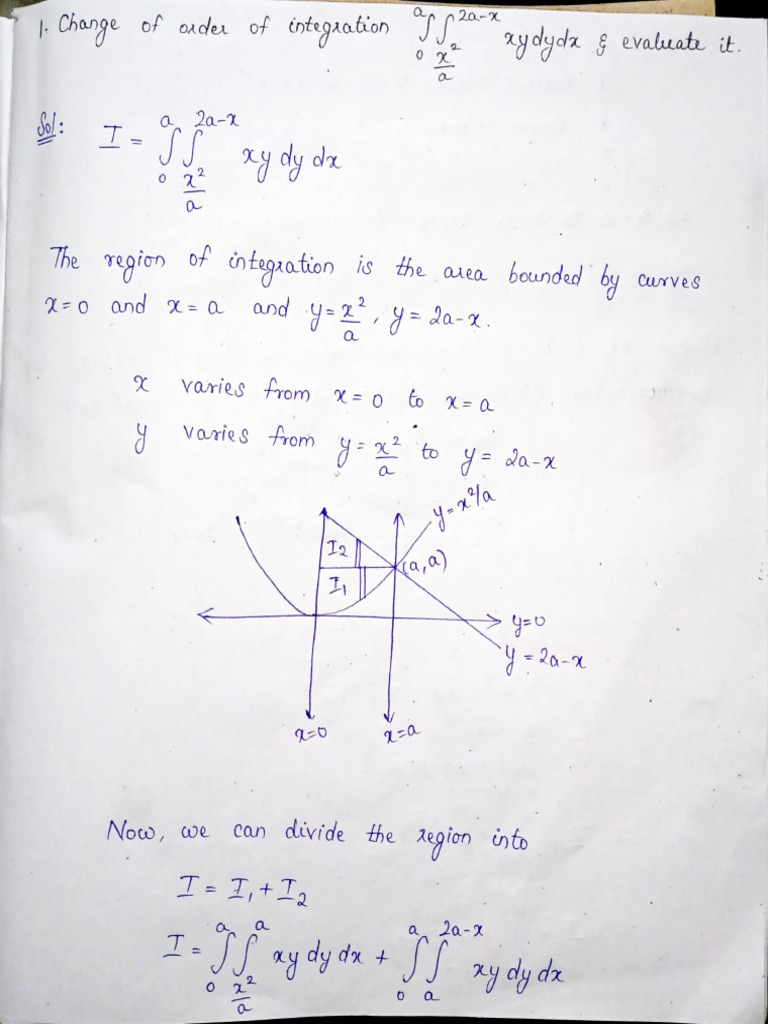 1. Change of order of integration ∫₀ᵃ ∫_{x²/a}^{2a-x} xy dy dx & evaluate it.
Sol: I = ∫₀ᵃ ∫_{x²/a}^{2a-x} xy dy dx
The region of integration is the area bounded by curves
x=0 and x=a and y=x²/a, y=2a-x.
x varies from x=0 to x=a
y varies from y=x²/a to y=2a-x
y=x²/a
I₂
(a,a)
I₁
y=0
y=2a-x
x=0 x=a
Now, we can divide the region into
I = I₁+I₂
I = ∫₀ᵃ ∫_{x²/a}^{a} xy dy dx + ∫₀ᵃ ∫_{a}^{2a-x} xy dy dx